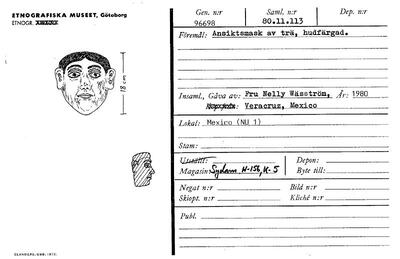 ETNOGRAFISKA MUSEET, Göteborg
ETNOGR.
18 cm
GLANBERG, GBG, 1971.
Gen. n:r
96698
Saml. n:r
80.11.113
Dep. n:r
Föremål: Ansiktsmask av trä, hudfärgad.
Insaml., Gåva av: Fru Nelly Wäsström, År: 1980
Veracruz, Mexico
Lokal: Mexico (NU 1)
Stam:
Utställt:
Magasin: Sydam H-156, K-5
Depon:
Byte till:
Negat n:r
Bild n:r
Skiopt. n:r
Kliché n:r
Publ.